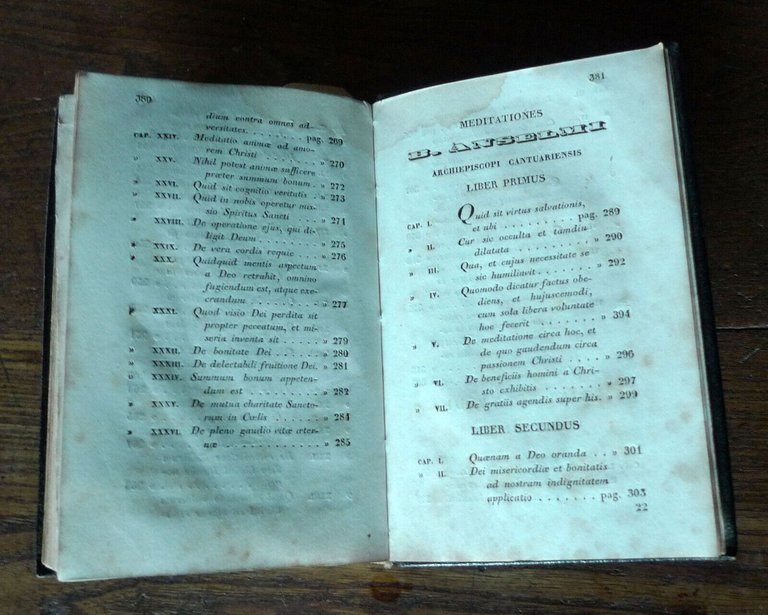 380
dium contra omnes ad-
versitates. . . . . . . . pag. 269
CAP. XXIV. Meditatio animæ ad amo-
rem Christi . . . . . . . » 270
» XXV. Nihil potest animæ sufficere
præter summum bonum . » 272
» XXVI. Quid sit cognitio veritatis . » 273
» XXVII. Quid in nobis operetur mis-
sio Spiritus Sancti . . . . » 274
» XXVIII. De operatione ejus, qui di-
ligit Deum . . . . . . . . » 275
» XXIX. De vera cordis requie . . . » 276
» XXX. Quidquid mentis aspectum
a Deo retrahit, omnino
fugiendum est, atque exe-
crandum . . . . . . . . . » 277
» XXXI. Quod visio Dei perdita sit
propter peccatum, et mi-
seria inventa sit . . . . . » 279
» XXXII. De bonitate Dei . . . . . . » 280
» XXXIII. De delectabili fruitione Dei. » 281
» XXXIV. Summum bonum appeten-
dum est . . . . . . . . . » 282
» XXXV. De mutua charitate Sancto-
rum in Cœlis . . . . . . . » 284
» XXXVI. De pleno gaudio vitæ æter-
næ . . . . . . . . . . . » 285
381
MEDITATIONES
B. ANSELMI
ARCHIEPISCOPI CANTUARIENSIS
LIBER PRIMUS
CAP. I. Quid sit virtus salvationis,
et ubi . . . . . . . . pag. 289
» II. Cur sic occulta et tamdiu
dilatata . . . . . . . . . » 290
» III. Qua, et cujus necessitate se
sic humiliavit . . . . . . » 292
» IV. Quomodo dicatur factus obe-
diens, et hujuscemodi,
cum sola libera voluntate
hoc fecerit . . . . . . . » 394
» V. De meditatione circa hoc, et
de quo gaudendum circa
passionem Christi . . . . » 296
» VI. De beneficiis homini a Chri-
sto exhibitis . . . . . . . » 297
» VII. De gratiis agendis super his. » 299
LIBER SECUNDUS
CAP. I. Quænam a Deo oranda . . » 301
» II. Dei misericordiæ et bonitatis
ad nostram indignitatem
applicatio . . . . . . . pag. 303
22